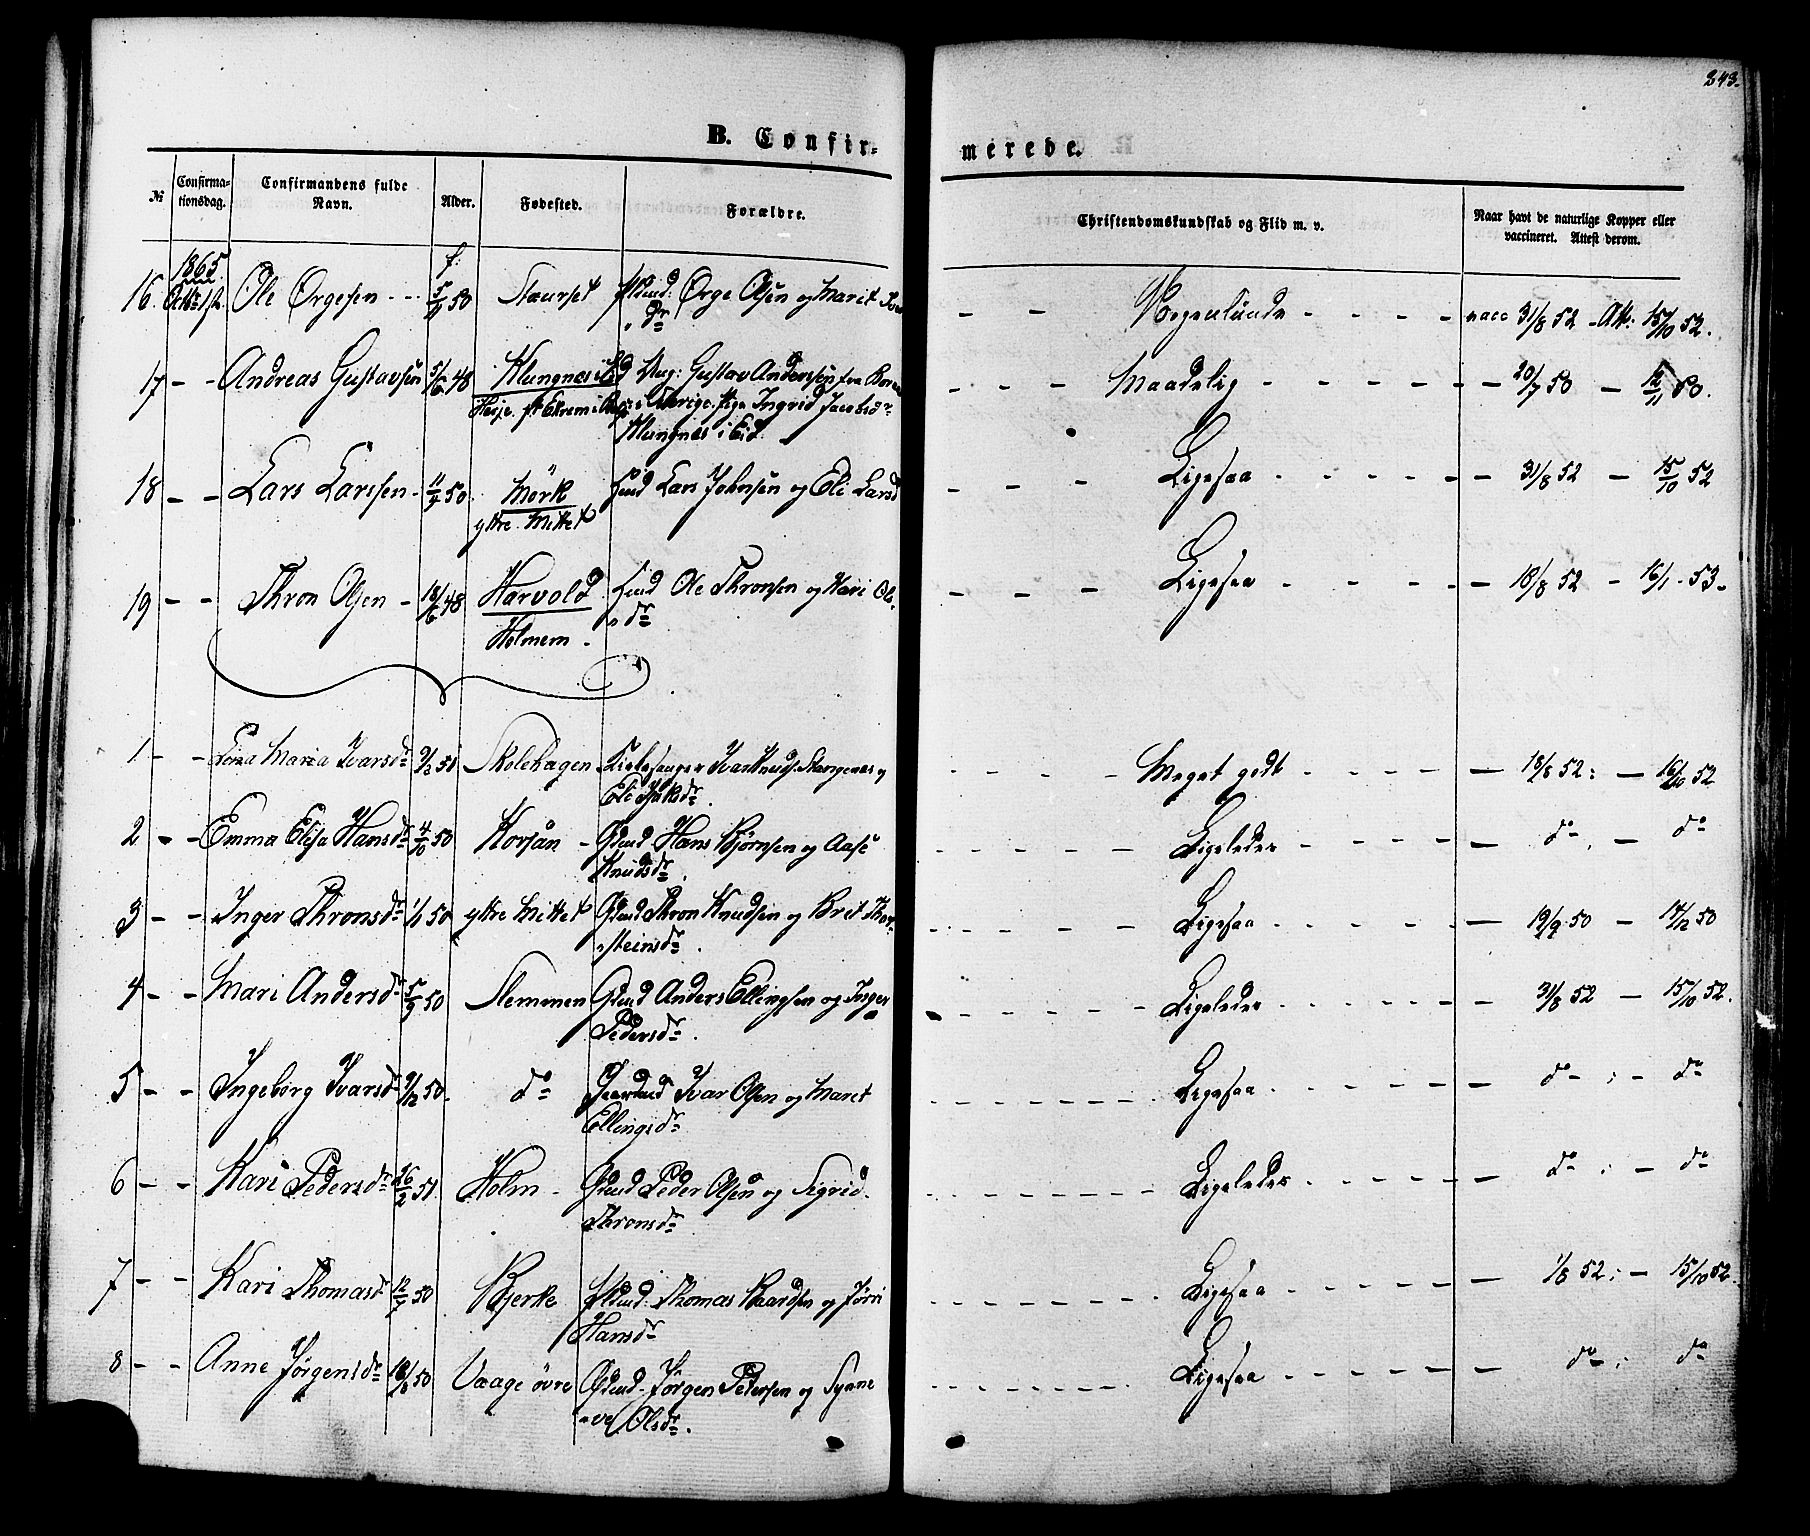 243.
B. Confir-
merede.
№
Confirma-
tionsdag.
Confirmandens fulde
Navn.
Alder.
Fødested.
Forældre.
Christendomskundskab og Flid m. v.
Naar havt de naturlige Kopper eller
vaccineret. Attest derom.
1865.
16. Octbr 1ste Ole Ørgesen - - f: 5/9 50 Staurset Plduud: Ørge Olsen og Marit
" dr - - Nogenlunde - - - - vacc 31/8 52 - Att: 15/10 52.
17 - - Andreas Gustavsen 5/6 48 Klungnes i Eid Ung: Gustav Anderssen fra
Sverige. Pige Ingrid Jacobsdr
Klungnes i Eid. - - Maadelig - - - - - 20/7 50 - 12/11 50.
18 - - Lars Larssen - 11/7 50. Mörk Huud Lars Johnsen og Eli Larsd
yttre Mittet - - - Ligesaa - - - - - 31/8 52 - 15/10 52
19 - - Thron Olsen - 18/6 48 Harvold Huud Ole Thronsen og Kari Ols
Holmem - " dr - - - Ligesaa - - - - - 18/8 52 - 16/1 - 53 -
1 - - Maria Ivarsdr 9/2 51 Skolehagen Kirkesanger Ivar Knuds. Stangenes og
Eli - - - - Meget godt - - - - 18/8 52: - 16/10 52
2 - - Emma Elisa Hansdr 4/10 50 Korsån - Gduud Hans Bjørnsen og Aase
Knudsdr. - - - - - Ligeledes - - - - do - do
3 - - Inger Thronsdr 1/1 50 yttre Mittet Gduud Thron Knudsen og Brit Thor-
steinsdr. - - - - Ligesaa - - - - 19/9 50 - 14/12 50
4 - - Mari Andersdr 5/9 50 Slemmen Gduud Anders Ellingsen og Inger
Pedersdr. - - - - Ligeledes - - - - 31/8 52 - 15/10 52.
5 - - Ingeborg Ivarsdr 9/12 50. do Ivar Olsen og Maret
Ellingsdr - - - - Ligesaa - - - - do - : - do
6 - - Kari Pedersdr 26/2 51 Holm - Gduud Peder Olsen og Sigrid.
Thronsdr - - - - Ligeledes - - - - do : - do
7 - - Kari Thomasd 12/7 50 Bjerke Plduud: Thomas Baardsen og
Hansdr - - - - Ligesaa - - - - 1/8 52: - 15/10 52.
8 - - Anne Jørgensdr 18/8 50 Vaage övre Gduud. Jørgen Pedersen og Synne
"ve Olsdr. - - - - Ligesaa - - - - do - : do